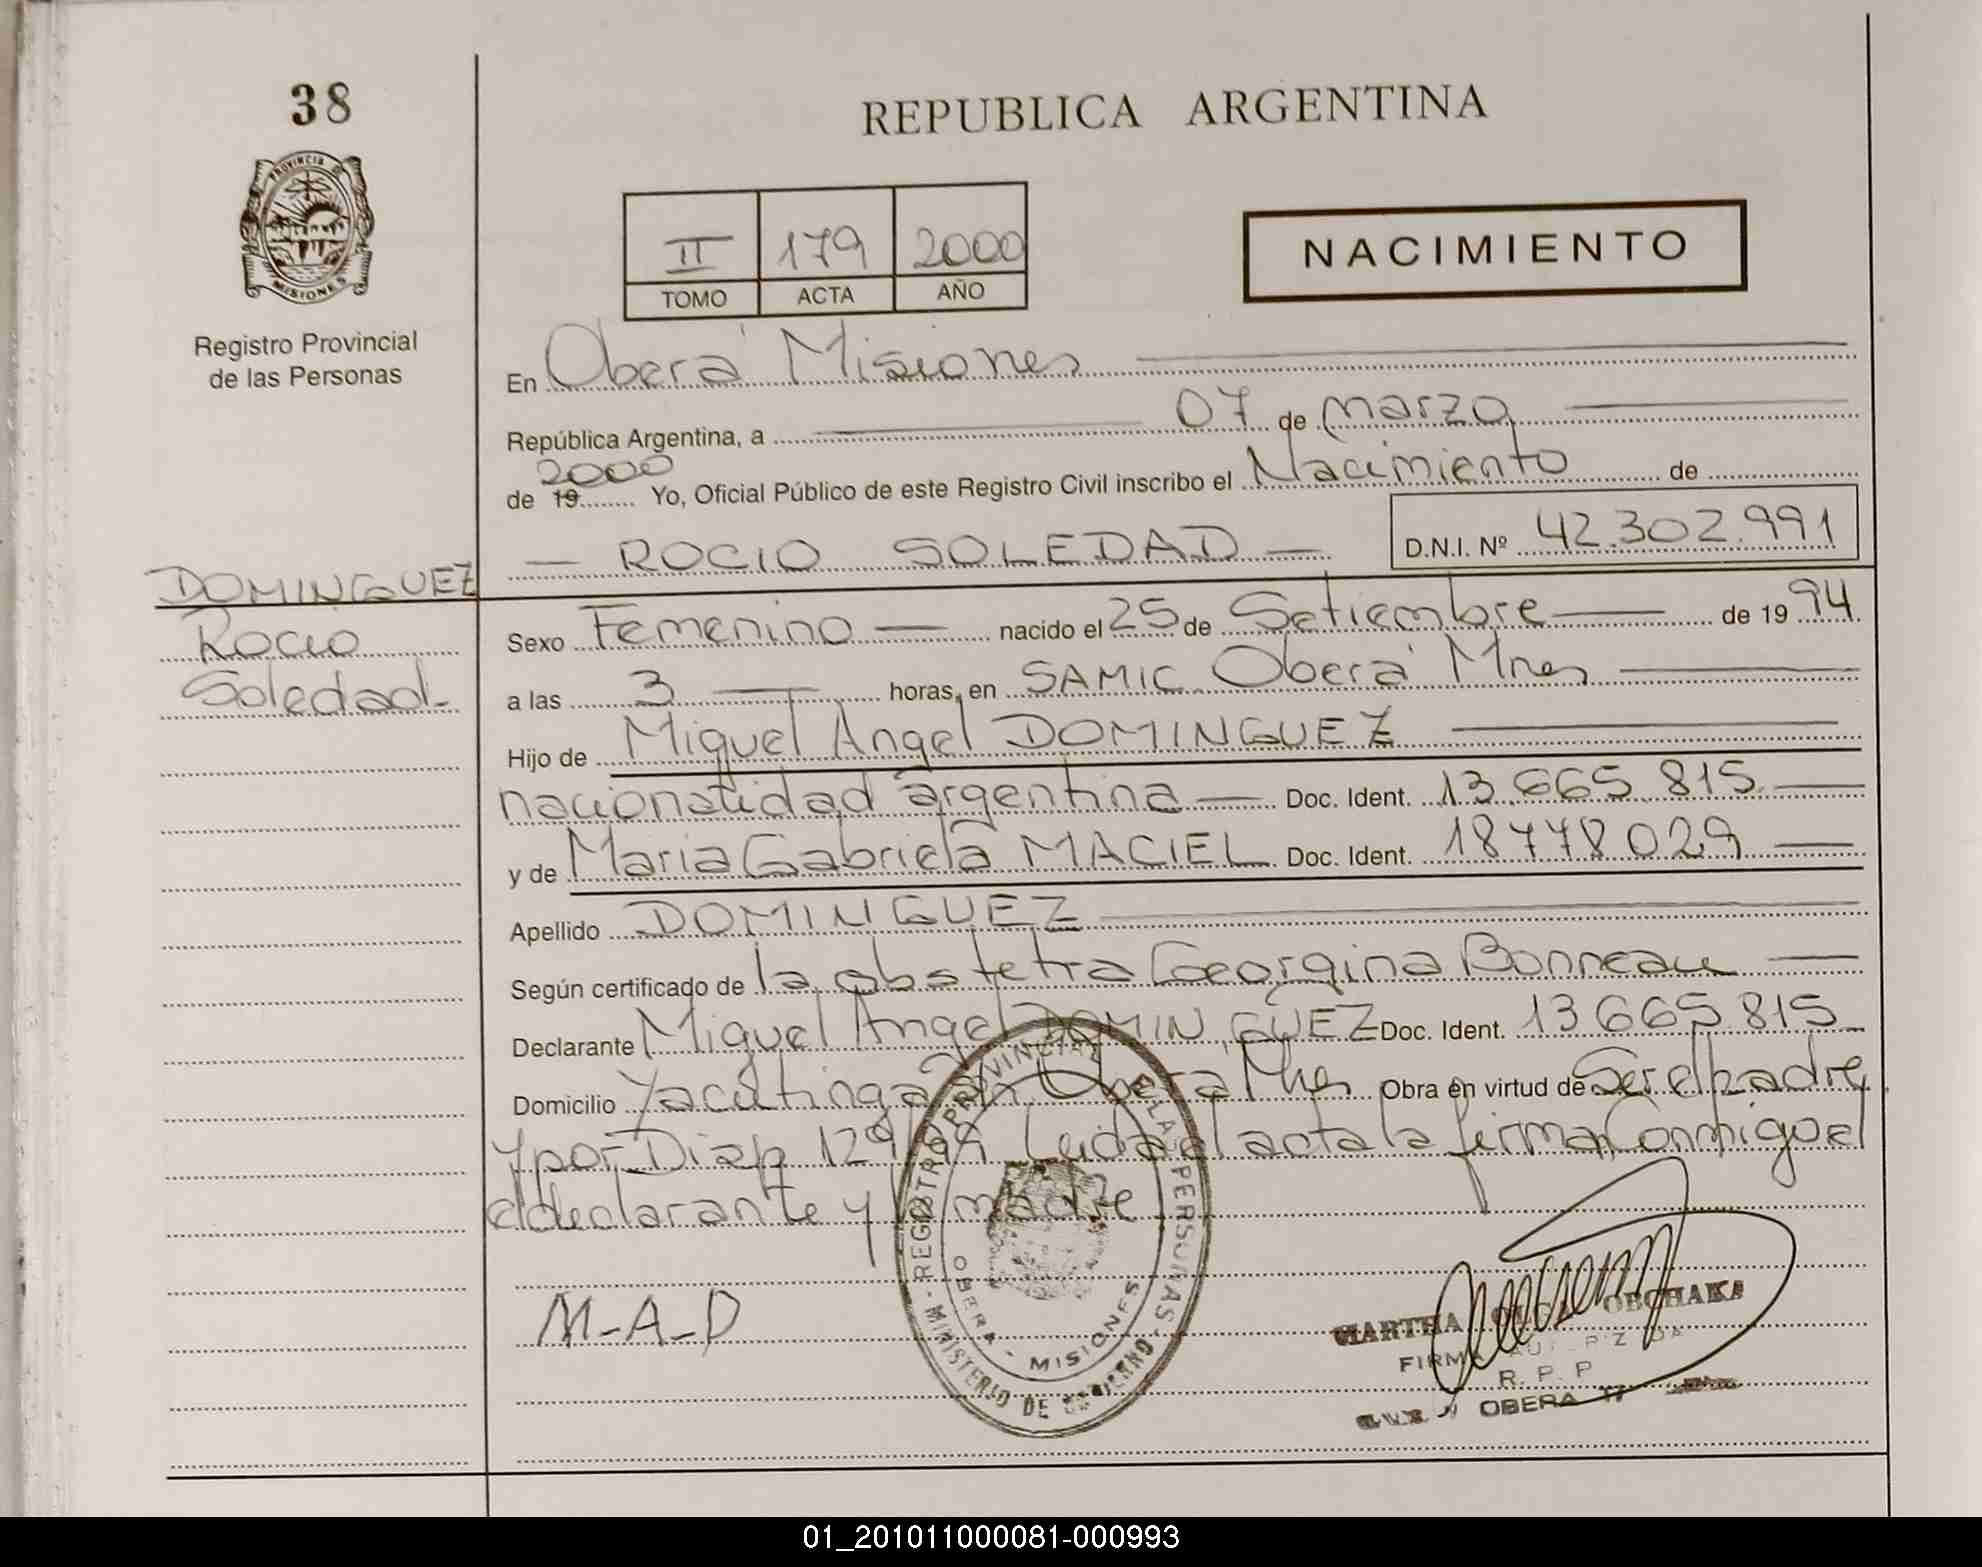 38
REPUBLICA ARGENTINA
PROVINCIA DE
MISIONES
Registro Provincial
de las Personas
II 179 2000
TOMO ACTA AÑO
NACIMIENTO
En Oberá Misiones
República Argentina, a 07 de marzo
2000
de 19 Yo, Oficial Público de este Registro Civil inscribo el Nacimiento de
— ROCIO SOLEDAD — D.N.I. Nº 42.302.991
DOMINGUEZ
Rocio
Soledad
Sexo Femenino — nacido el 25 de Setiembre — de 19 94
a las 3 — horas, en SAMIC Oberá Mnes
Hijo de Miguel Angel DOMINGUEZ
nacionalidad argentina — Doc. Ident. 13 665 815 —
y de Maria Gabriela MACIEL Doc. Ident. 18778029 —
Apellido DOMINGUEZ
Según certificado de la obstetra Georgina Bonneau —
Declarante Miguel Angel DOMINGUEZ Doc. Ident. 13 665 815
Domicilio Yacutinga Oberá Mnes Obra en virtud de Ser el padre
y por Disp 129/99 Leida el acta la firma Conmigo el
declarante y la madre
M-A-D
REGISTRO PROVINCIAL DE LAS PERSONAS
OBERA - MISIONES
- MINISTERIO DE GOBIERNO -
MARTHA OLGA OBCHAKA
FIRMA AUTORIZADA
R. P. P
OBERA
01_201011000081-000993